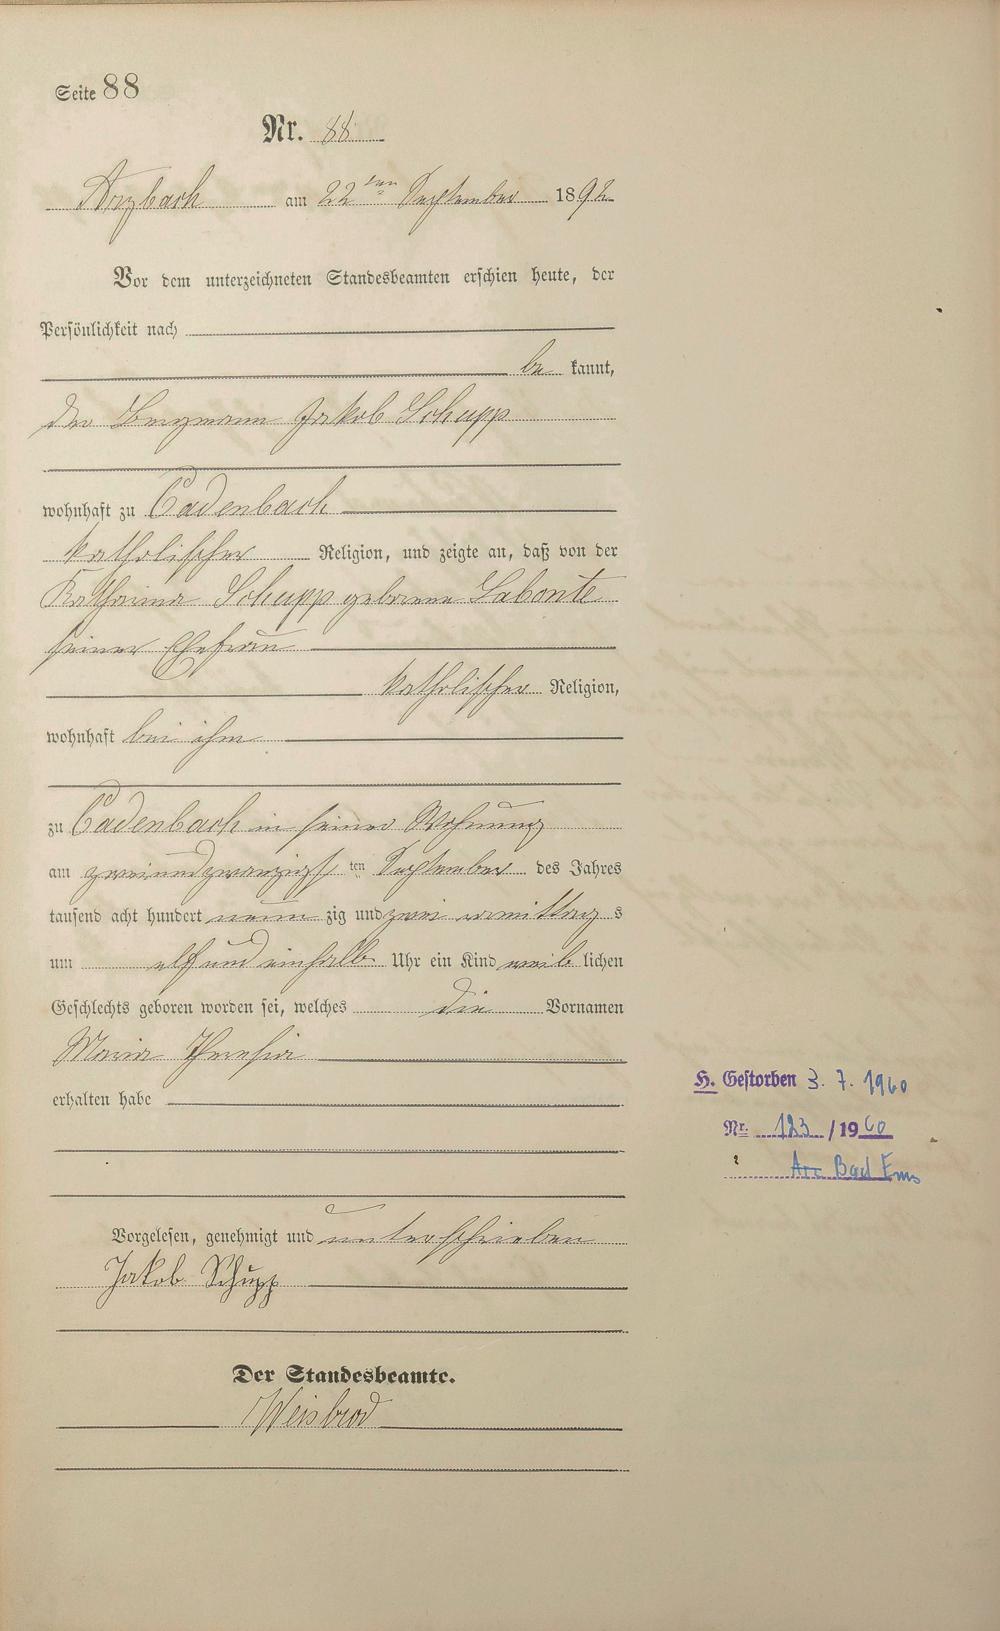 Seite 88
Nr. 88
Arzbach am 22ten September 1892
Vor dem unterzeichneten Standesbeamten erschien heute, der
Persönlichkeit nach
be kannt,
der Bergmann Jakob Schupp
wohnhaft zu Cadenbach
katholischer Religion, und zeigte an, daß von der
Katharina Schupp geborene Labonte
seiner Ehefrau
katholischer Religion,
wohnhaft bei ihm
zu Cadenbach in seiner Wohnung
am zweiundzwanzigst ten September des Jahres
tausend acht hundert neun zig und zwei vormittag s
um elf und einhalb Uhr ein Kind weib lichen
Geschlechts geboren worden sei, welches die Vornamen
Maria Theresia
erhalten habe
H. Gestorben 3. 7. 1960
Nr. 123 / 1960
Bad Ems
Vorgelesen, genehmigt und unterschrieben
Jakob Schupp
Der Standesbeamte.
Weisbrod